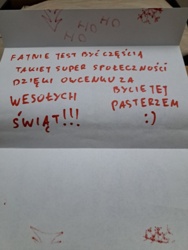 HO HO HO
FAJNIE JEST BYĆ CZĘŚCIĄ
TAKIEJ SUPER SPOŁECZNOŚCI
DZIĘKI OWCENKU ZA
BYCIE JEJ
WESOŁYCH PASTERZEM
ŚWIĄT!!! :)